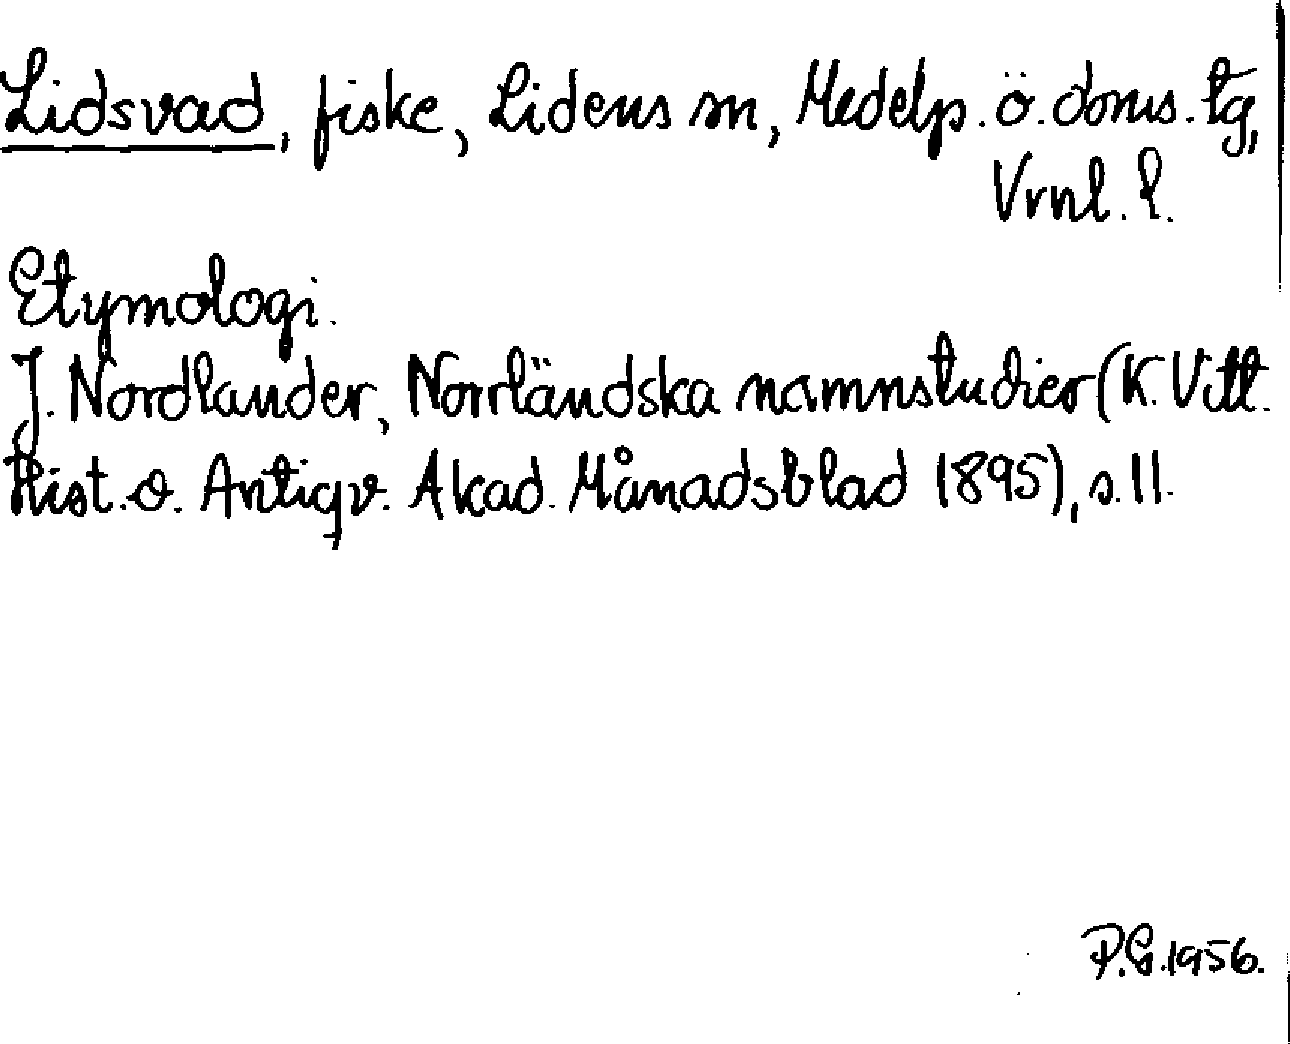 Lidsvad, fiske, Lidens sn, Medelp. ö. doms. tg,
Vrnl. l.
Etymologi.
J. Nordlander, Norrländska namnstudier (K. Vitt.
Hist. o. Antiqv. Akad. Månadsblad 1895), s. 11.
P.G. 1956.